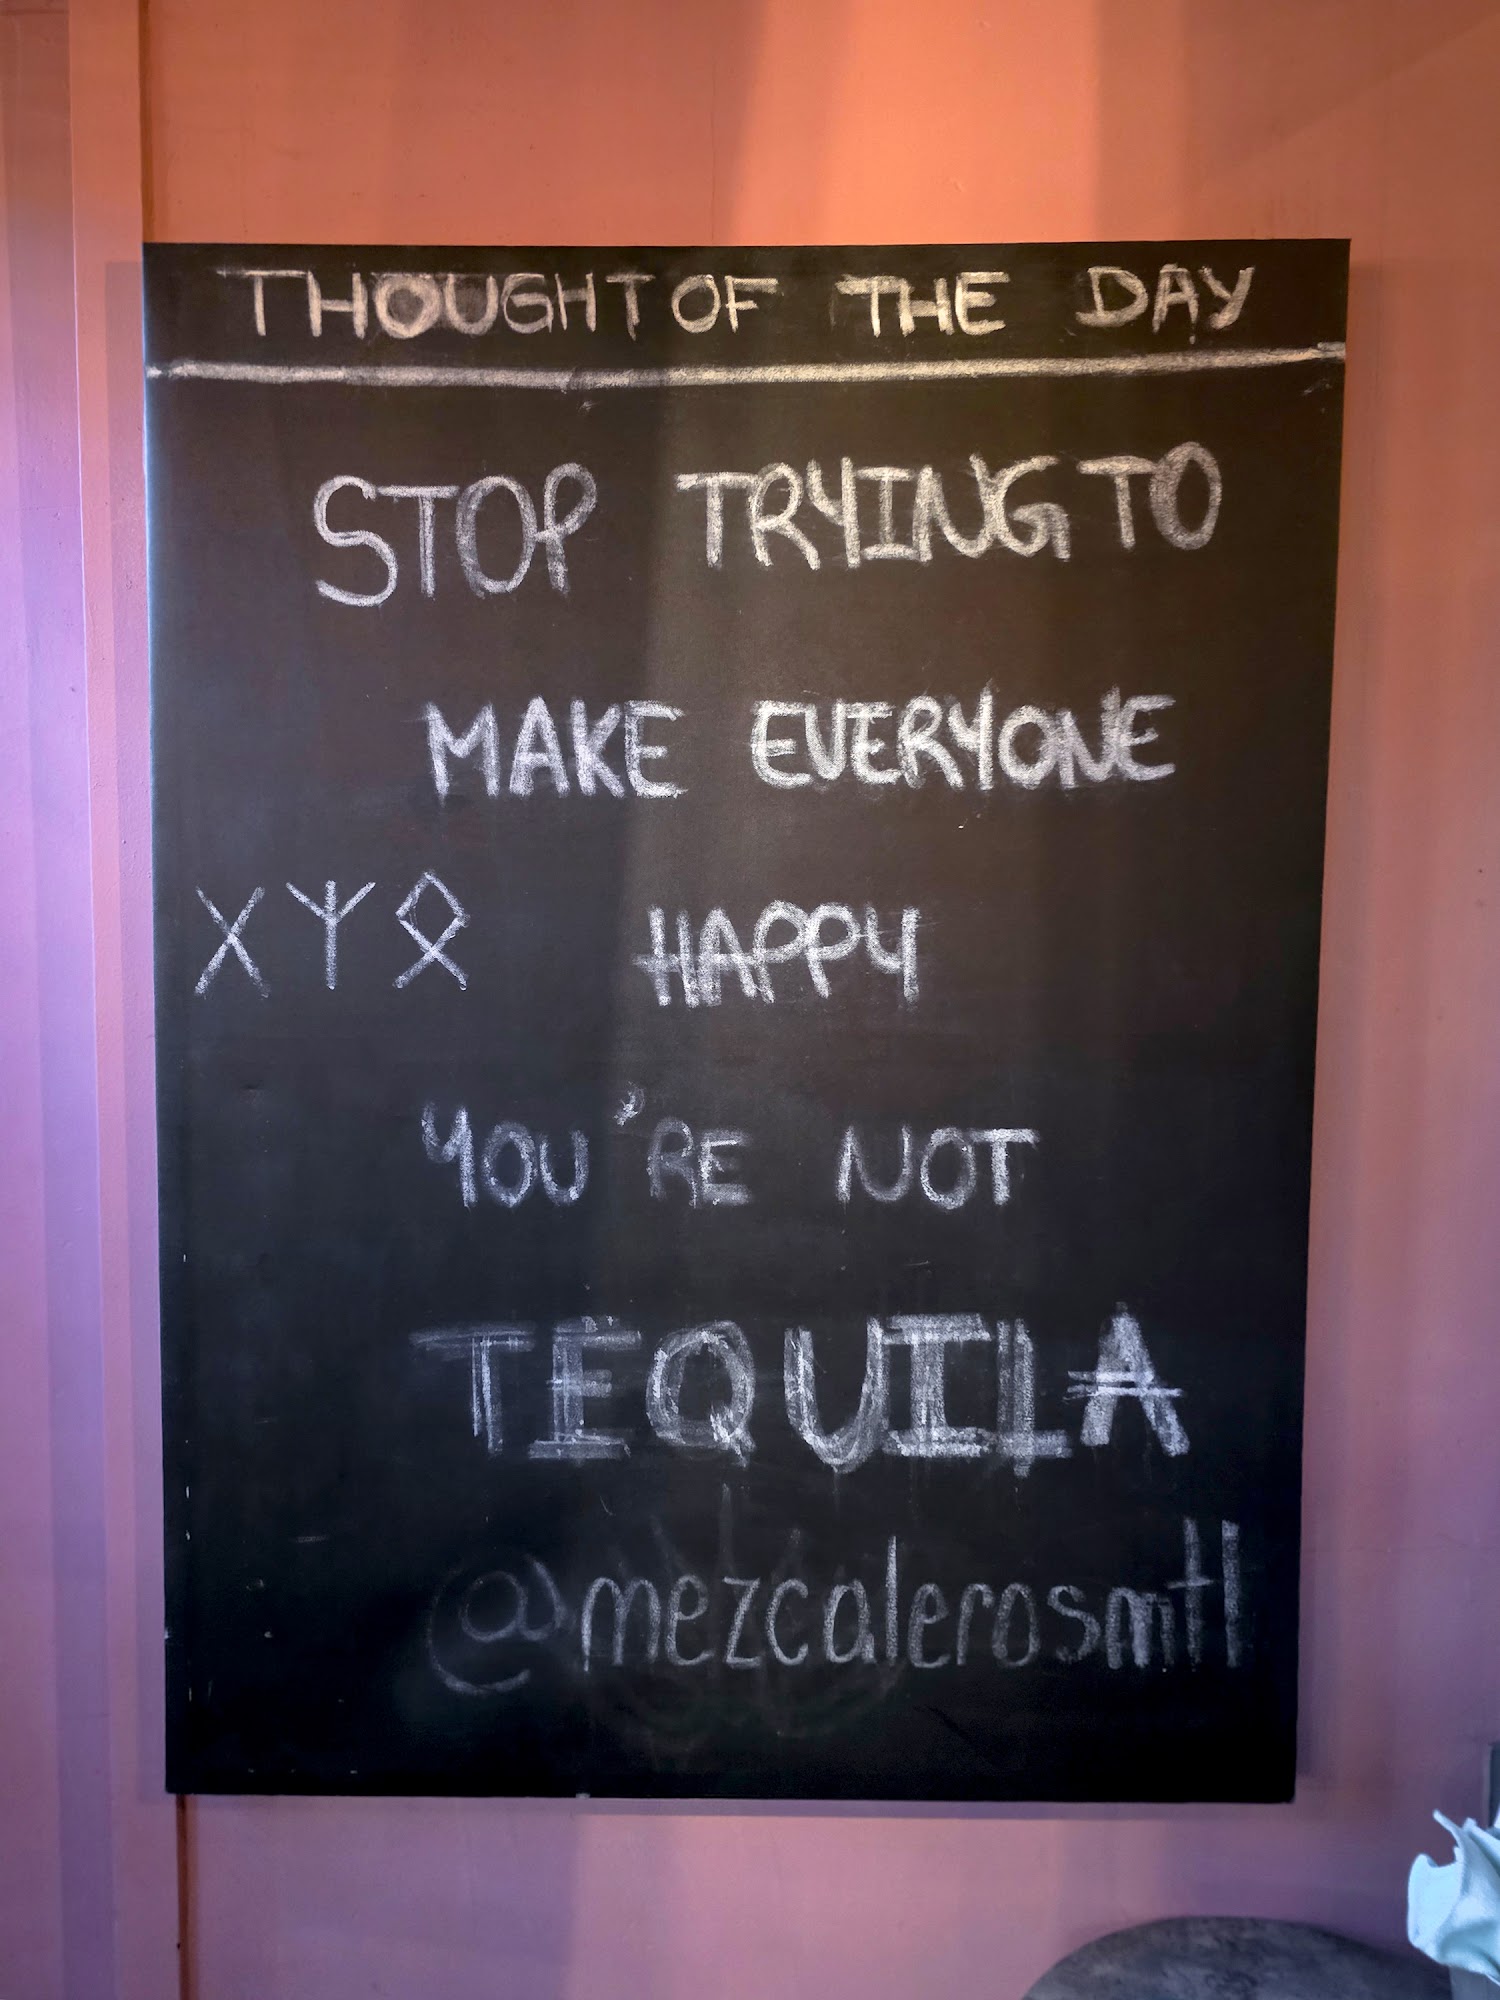 THOUGHT OF THE DAY
STOP TRYING TO
MAKE EVERYONE
ᚷ ᛉ ᛟ HAPPY
YOU'RE NOT
TEQUILA
@mezcalerosmtl